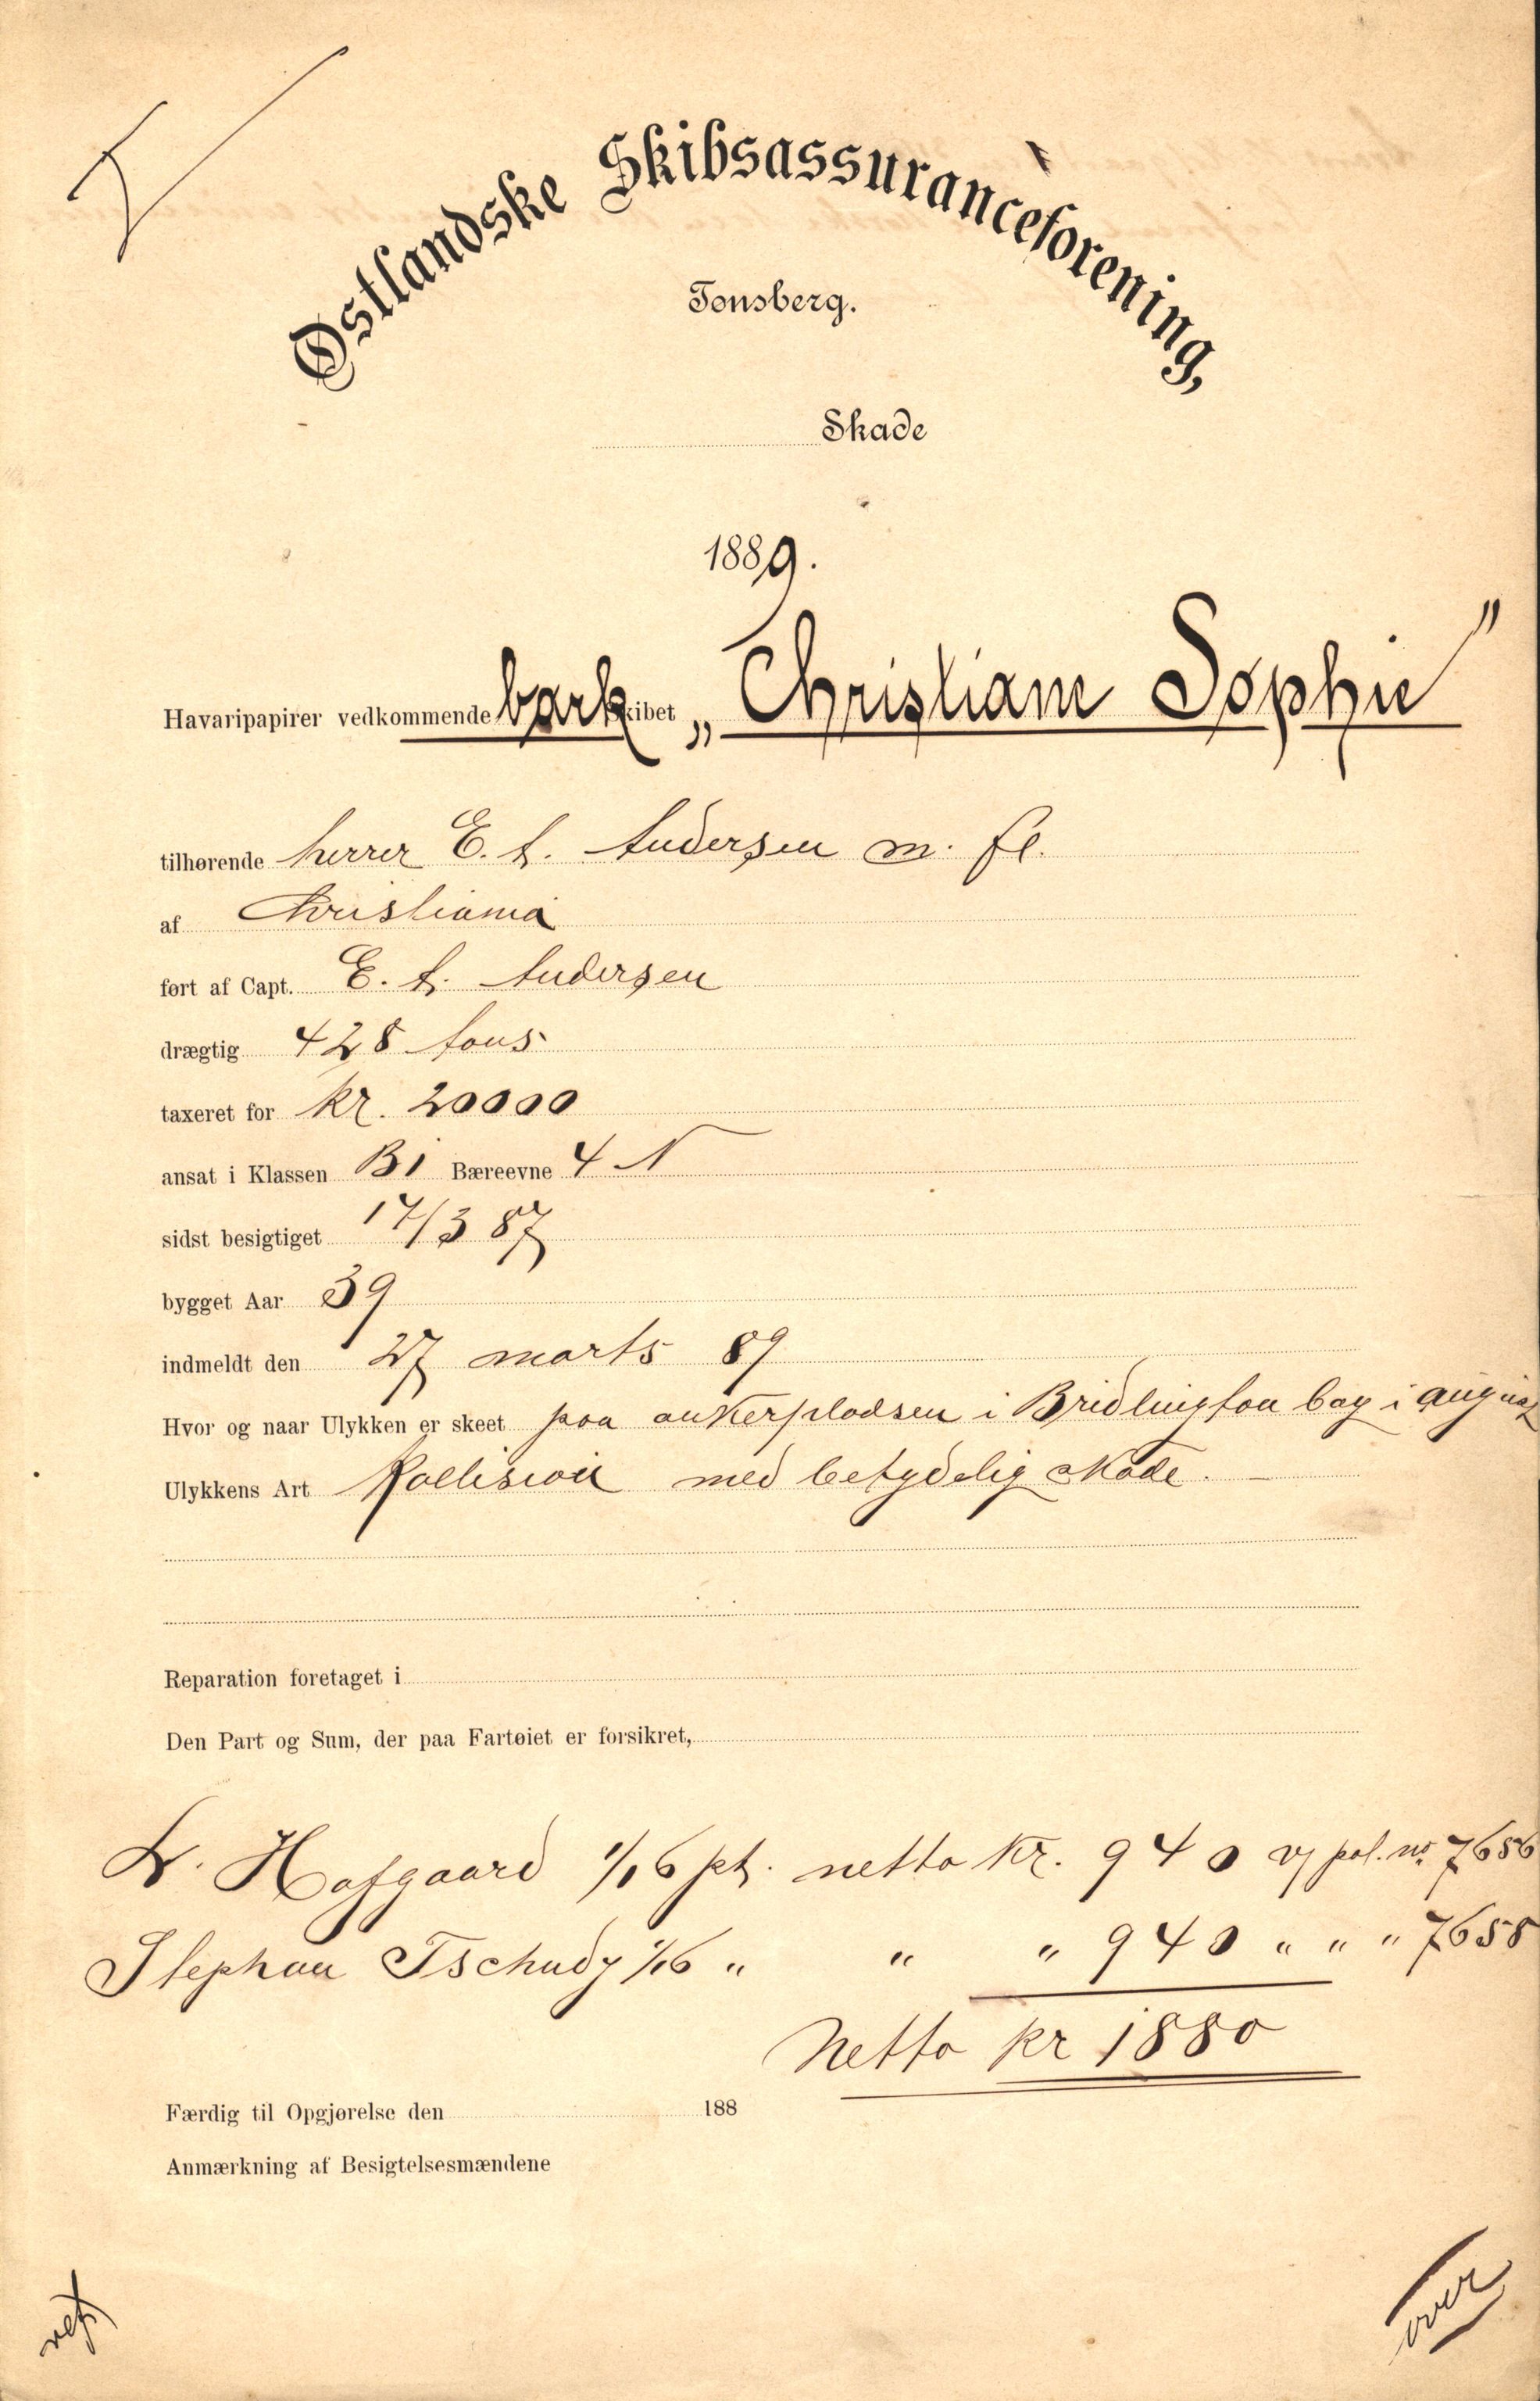 Østlandske Skibsassuranceforening,
Tønsberg.
Skade
1889.
Havaripapirer vedkommende bark skibet „Christiane Sophie"
tilhørende herrer E. A. Andersen m. fl.
af Christiania
ført af Capt. E. A. Andersen
drægtig 428 tons
taxeret for kr. 20000
ansat i Klassen B1 Bæreevne 4 N
sidst besigtiget 17/3 87
bygget Aar 39
indmeldt den 27 marts 89
Hvor og naar Ulykken er skeet paa ankerpladsen i Bridlington bay i august
Ulykkens Art Kollision med betydelig skade. —
Reparation foretaget i
Den Part og Sum, der paa Fartøiet er forsikret,
Hafgaard 1/16 pt. netto kr. 940 pol. no. 7656
Stephan Tschudy 1/16 " " " 940 " " " 7658
Netto kr 1880
Færdig til Opgjørelse den 188
Anmærkning af Besigtelsesmændene
over